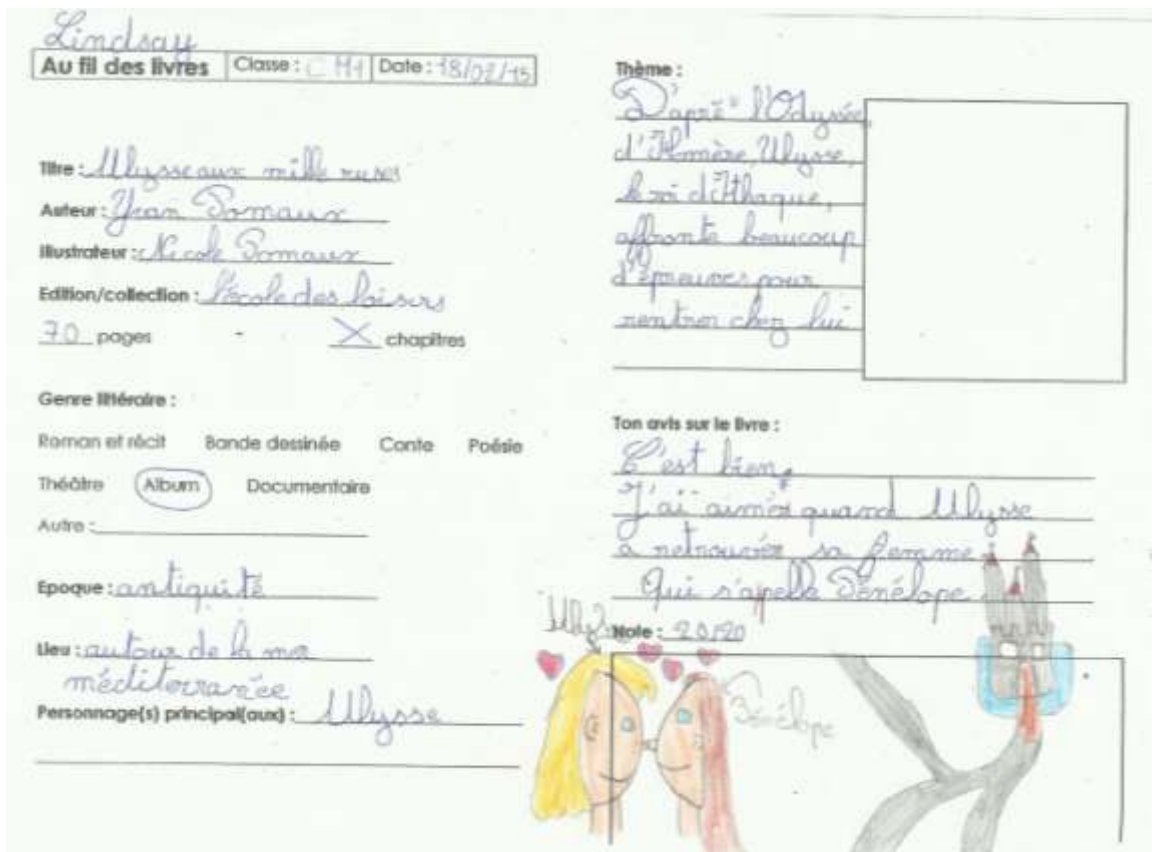 Lindsay
Au fil des livres Classe : CM1 Date : 18/02/15
Titre : Ulysse aux mille ruses
Auteur : Yvan Pomaux
Illustrateur : Nicole Pomaux
Edition/collection : l'école des loisirs
70 pages - X chapitres
Genre littéraire :
Roman et récit Bande dessinée Conte Poésie
Théâtre Album Documentaire
Autre :
Epoque : antiquité
Lieu : autour de la mer
méditerranée
Personnage(s) principal(aux) : Ulysse
Thème :
D'après l'Odyssée,
d'Homère, Ulysse,
le roi d'Ithaque,
affronte beaucoup
d'épreuves pour
rentrer chez lui
Ton avis sur le livre :
C'est bien,
J'ai aimée quand Ulysse
a retrouvée sa femme
Qui s'apelle Pénélope
Note : 20/20
Ulysse
Pénélope